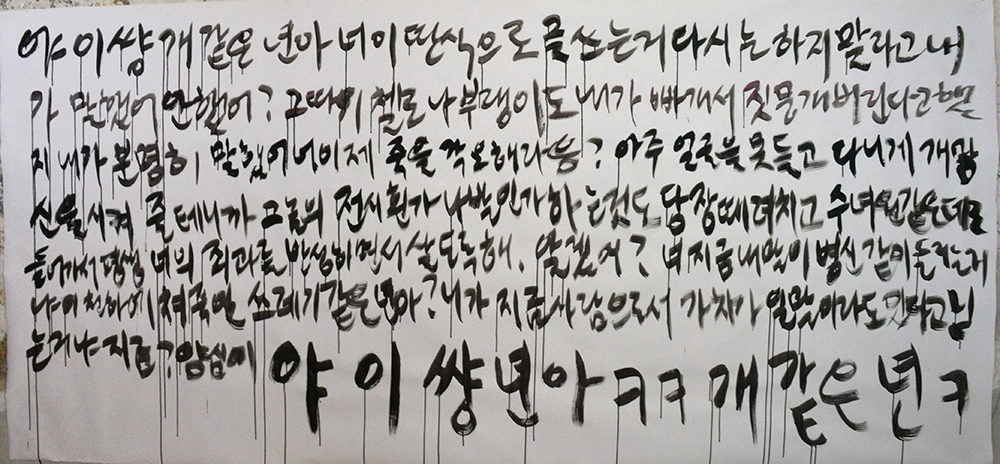 야 이 쌍 개같은 년아 너 이딴식으로 글 쓰는거 다시는 하지 말라고 내
가 말했어 안했어? 그따위 첼로나부랭이도 내가 빠개서 짓뭉개버린다고 했
지 내가 분명히 말했어 너 이제 죽을 각오해라 응? 아주 얼굴을 못들고 다니게 개망
신을 시켜 줄테니까 그놈의 전시회인가 나빨인가 하는것도 당장 때려치고 수녀원같은데로
들어가서 평생 너의 죄과를 반성하면서 살도록해. 알겠어? 너 지금 내말이 병신같이 들리는거
냐 이 천하에 쳐죽일 쓰레기같은 년아? 니가 지금 사람으로서 가치가 일말이라도 있다고 믿
는거냐 지금? 양심이
야 이 쌍년아 ㅋㅋ 개같은년ㅋ